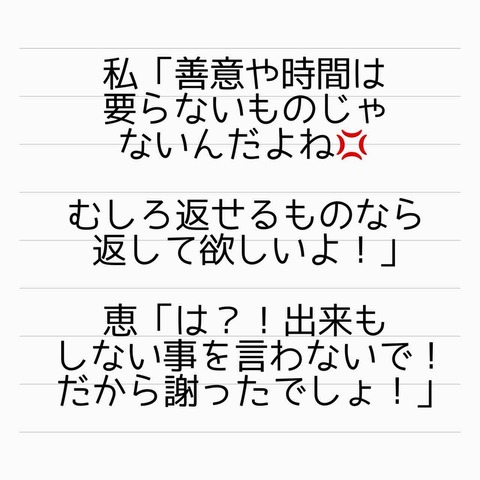 私「善意や時間は
要らないものじゃ
ないんだよね💢
むしろ返せるものなら
返して欲しいよ！」
恵「は？！出来も
しない事を言わないで！
だから謝ったでしょ！」